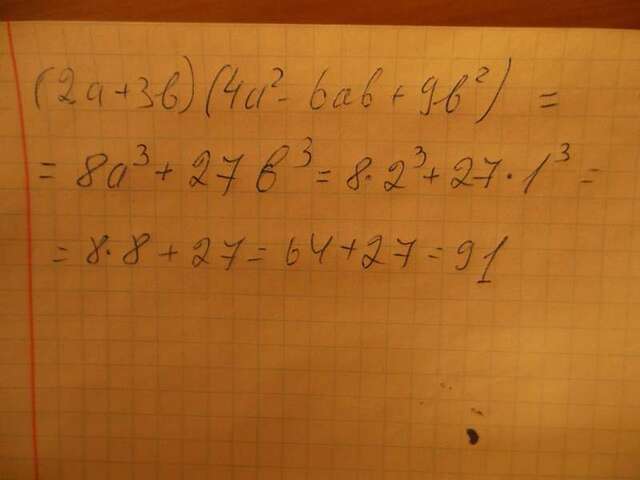 (2a+3b)(4a²-6ab+9b²) =
= 8a³+27b³=8·2³+27·1³=
=8·8+27=64+27=91